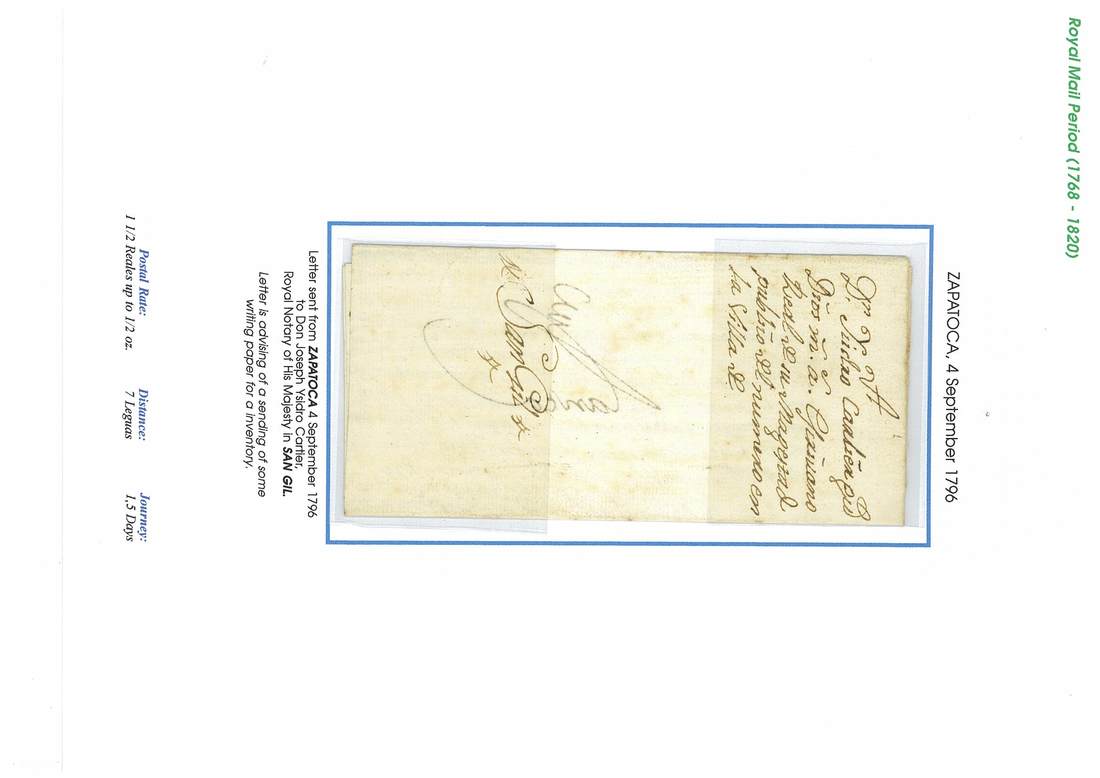 Royal Mail Period (1768 - 1820)
ZAPATOCA, 4 September 1796
Dn Ysidro
Dios m. a. Escrivano
Real de su Magestad
publico del numero en
la Villa de
San Gil
Letter sent from ZAPATOCA 4 September 1796
to Don Joseph Ysidro Cartier,
Royal Notary of His Majesty in SAN GIL.
Letter is advising of a sending of some
writing paper for a inventory.
Postal Rate:
1 1/2 Reales up to 1/2 oz.
Distance:
7 Leguas
Journey:
1,5 Days